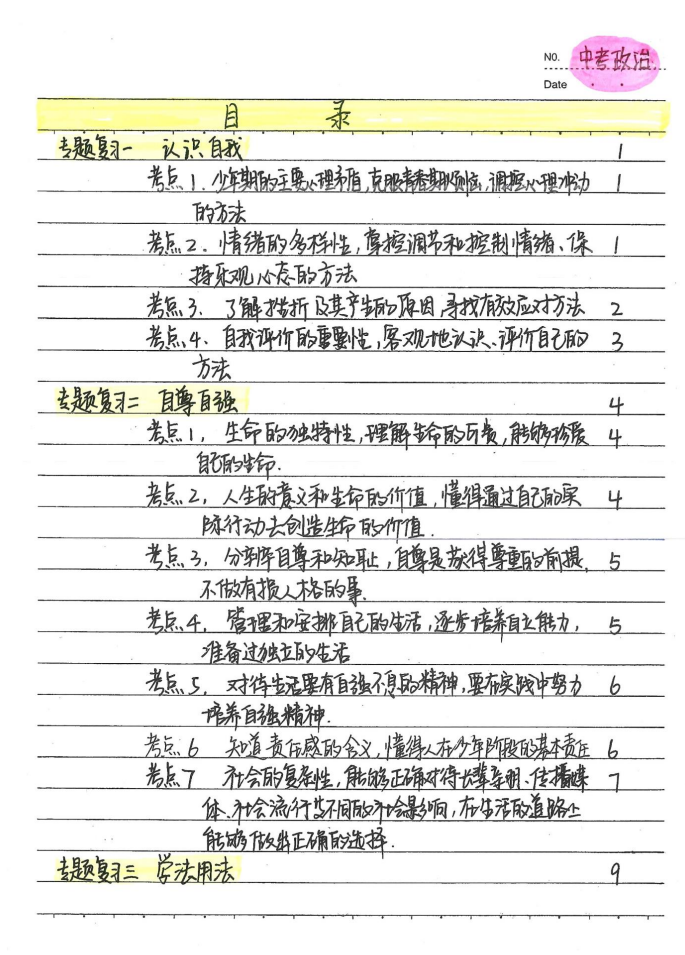 NO. 中考政治
Date
目 录
专题复习一 认识自我 1
考点1. 少年期的主要心理矛盾,克服青春期烦恼,调控心理冲动 1
的方法
考点2. 情绪的多样性,掌控调节和控制情绪、保 1
持乐观心态的方法
考点3. 了解挫折及其产生的原因,寻找有效应对方法 2
考点4. 自我评价的重要性,客观地认识、评价自己的 3
方法
专题复习二 自尊自强 4
考点1, 生命的独特性,理解生命的可贵,能够珍爱 4
自己的生命.
考点2, 人生的意义和生命的价值,懂得通过自己的实 4
际行动去创造生命的价值.
考点3, 分辨自尊和知耻,自尊是获得尊重的前提, 5
不做有损人格的事.
考点4, 管理和安排自己的生活,逐步培养自立能力, 5
准备过独立的生活
考点5, 对待生活要有自强不息的精神,要在实践中努力 6
培养自强精神.
考点6 知道责任感的含义,懂得人在少年阶段的基本责任 6
考点7 社会的复杂性,能够正确对待长辈亲朋、传播媒 7
体、社会流行等不同的社会影响,在生活的道路上
能够做出正确的选择.
专题复习三 学法用法 9